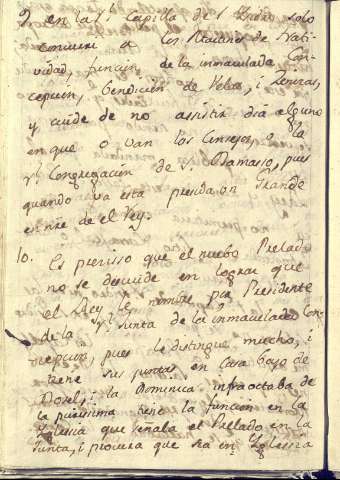 9. en la Rl Capilla de S. Isidro solo
concurre a los Maitines de Nati-
vidad, funcion de la inmaculada Con-
cepcion, bendicion de Velas, i Zeniza,
y cuide de no assistir dia alguno
en que o van los Consejos, o la
Rl Congregacion de S. Damaso, pues
quando va esta preside un Grande
en nre de el Rey.
10. Es preciso que el nuebo Prelado
no se descuide en lograr que
el Rey le nombre por Presidente
de la Rl Junta de la inmaculada Con-
cepcion, pues le distingue mucho, i
tiene sus juntas en casa bajo de
Dosel, i la Dominica infraoctaba de
la purisima tiene la funcion en la
Iglesia que señala el Prelado en la
Junta, i procura que sea en Iglesia